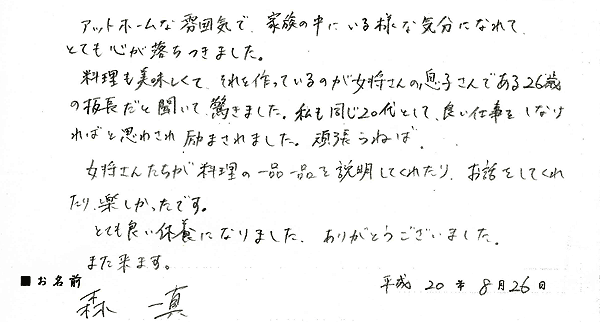 アットホームな雰囲気で、家族の中にいる様な気分になれて
とても心が落ちつきました。
料理も美味しくて、それを作っているのが女将さんの息子さんである26歳
の板長だと聞いて驚きました。私も同じ20代として、良い仕事をしなけ
ればと思わされ励まされました。頑張らねば、
女将さんたちが料理の一品一品を説明してくれたり、お話をしてくれ
たり、楽しかったです。
とても良い休養になりました、ありがとうございました。
また来ます。
■お名前 平成20年8月26日
森 一真